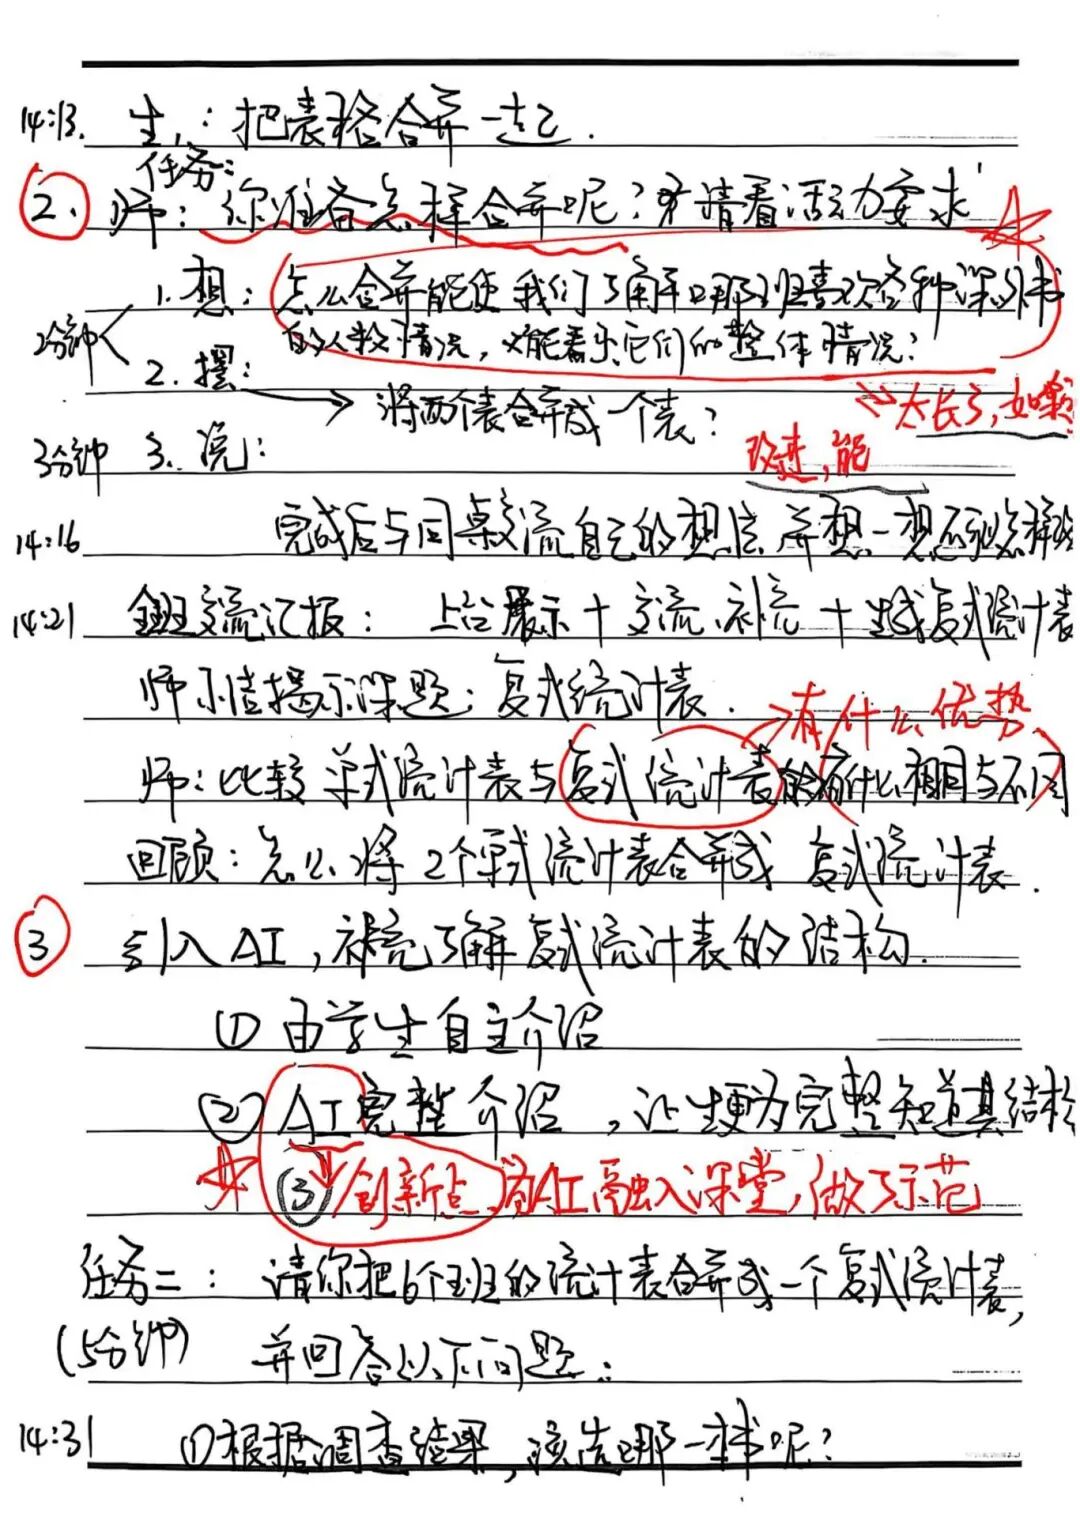 14:13. 生1:把表格合并一起.
任务:
2. 师:你准备怎样合并呢?请看活动要求
1.想:怎么合并能使我们了解哪班喜欢各种课外书
2分钟
的人数情况,又能看出它们的整体情况?
2.摆:
将两个表合并成一个表?
太长了,如
3分钟 3.说:
改进,能
14:16 完成后与同桌交流自己的想法,并想一想还可以怎样
14:21 全班交流汇报: 上台展示+交流、补充+生成复式统计表
师小结揭示课题:复式统计表.
有什么优势
师:比较单式统计表与复式统计表的有什么相同与不同
回顾:怎么将2个单式统计表合并成 复式统计表.
③ 引入AI,补充了解复式统计表的结构.
① 由学生自主介绍
② AI完整介绍,让生更为完整知道其结构
③ 创新点,有AI融入课堂,做了示范
任务二: 请你把6个班的统计表合并成一个复式统计表,
(5分钟) 并回答以下问题:
14:31 ①根据调查结果,该选哪一本书呢?